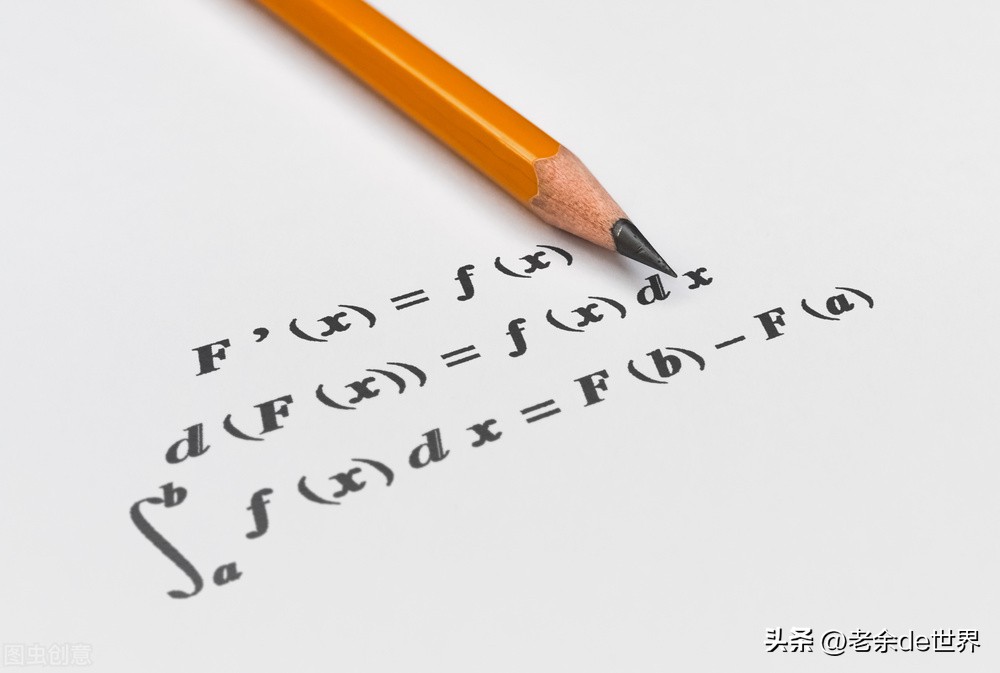 F'(x)=f(x)
d(F(x))=f(x)dx
∫ₐᵇ f(x)dx=F(b)−F(a)
图虫创意
头条 @老余de世界